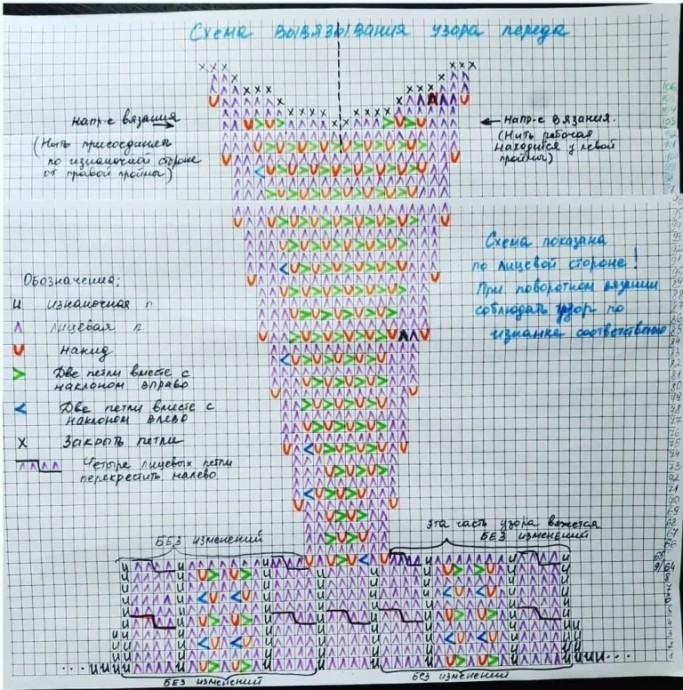 Схема вывязывания узора переда
напр-е вязания
(Нить присоединяем
по изнаночной стороне
от правой проймы)
напр-е вязания.
(Нить рабочая
находится у левой
проймы)
Схема показана
по лицевой стороне!
При поворотном вязании
соблюдать узор по
изнанке соответственно
Обозначения:
И изнаночная п
Λ лицевая п
U накид
> Две петли вместе с
наклоном вправо
< Две петли вместе с
наклоном влево
X Закрыть петли
Четыре лицевых петли
перекрестить налево
БЕЗ изменений
эта часть узора вяжется
БЕЗ изменений
БЕЗ изменений
без изменений